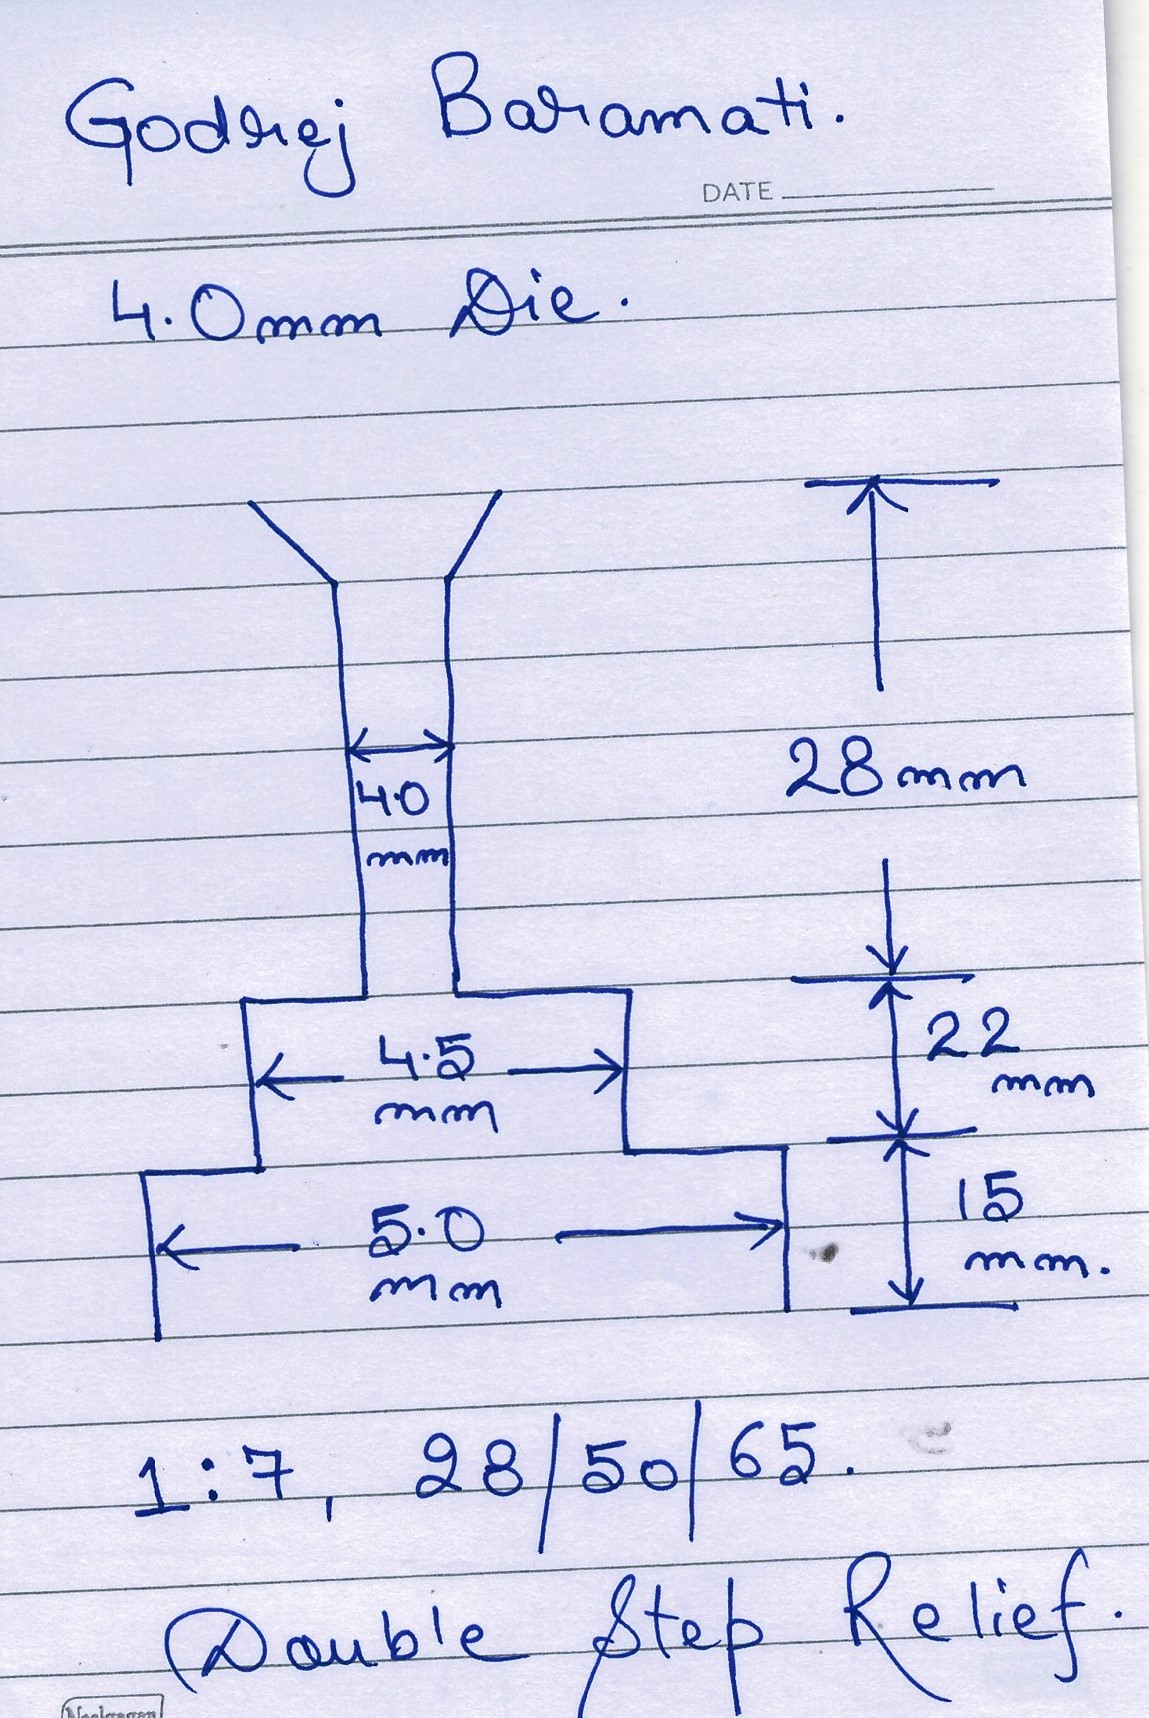 Godrej Baramati.
DATE
4.0mm Die.
28mm
4.0
mm
22
mm
4.5
mm
15
mm.
5.0
mm
1:7, 28/50/65.
Double Step Relief.